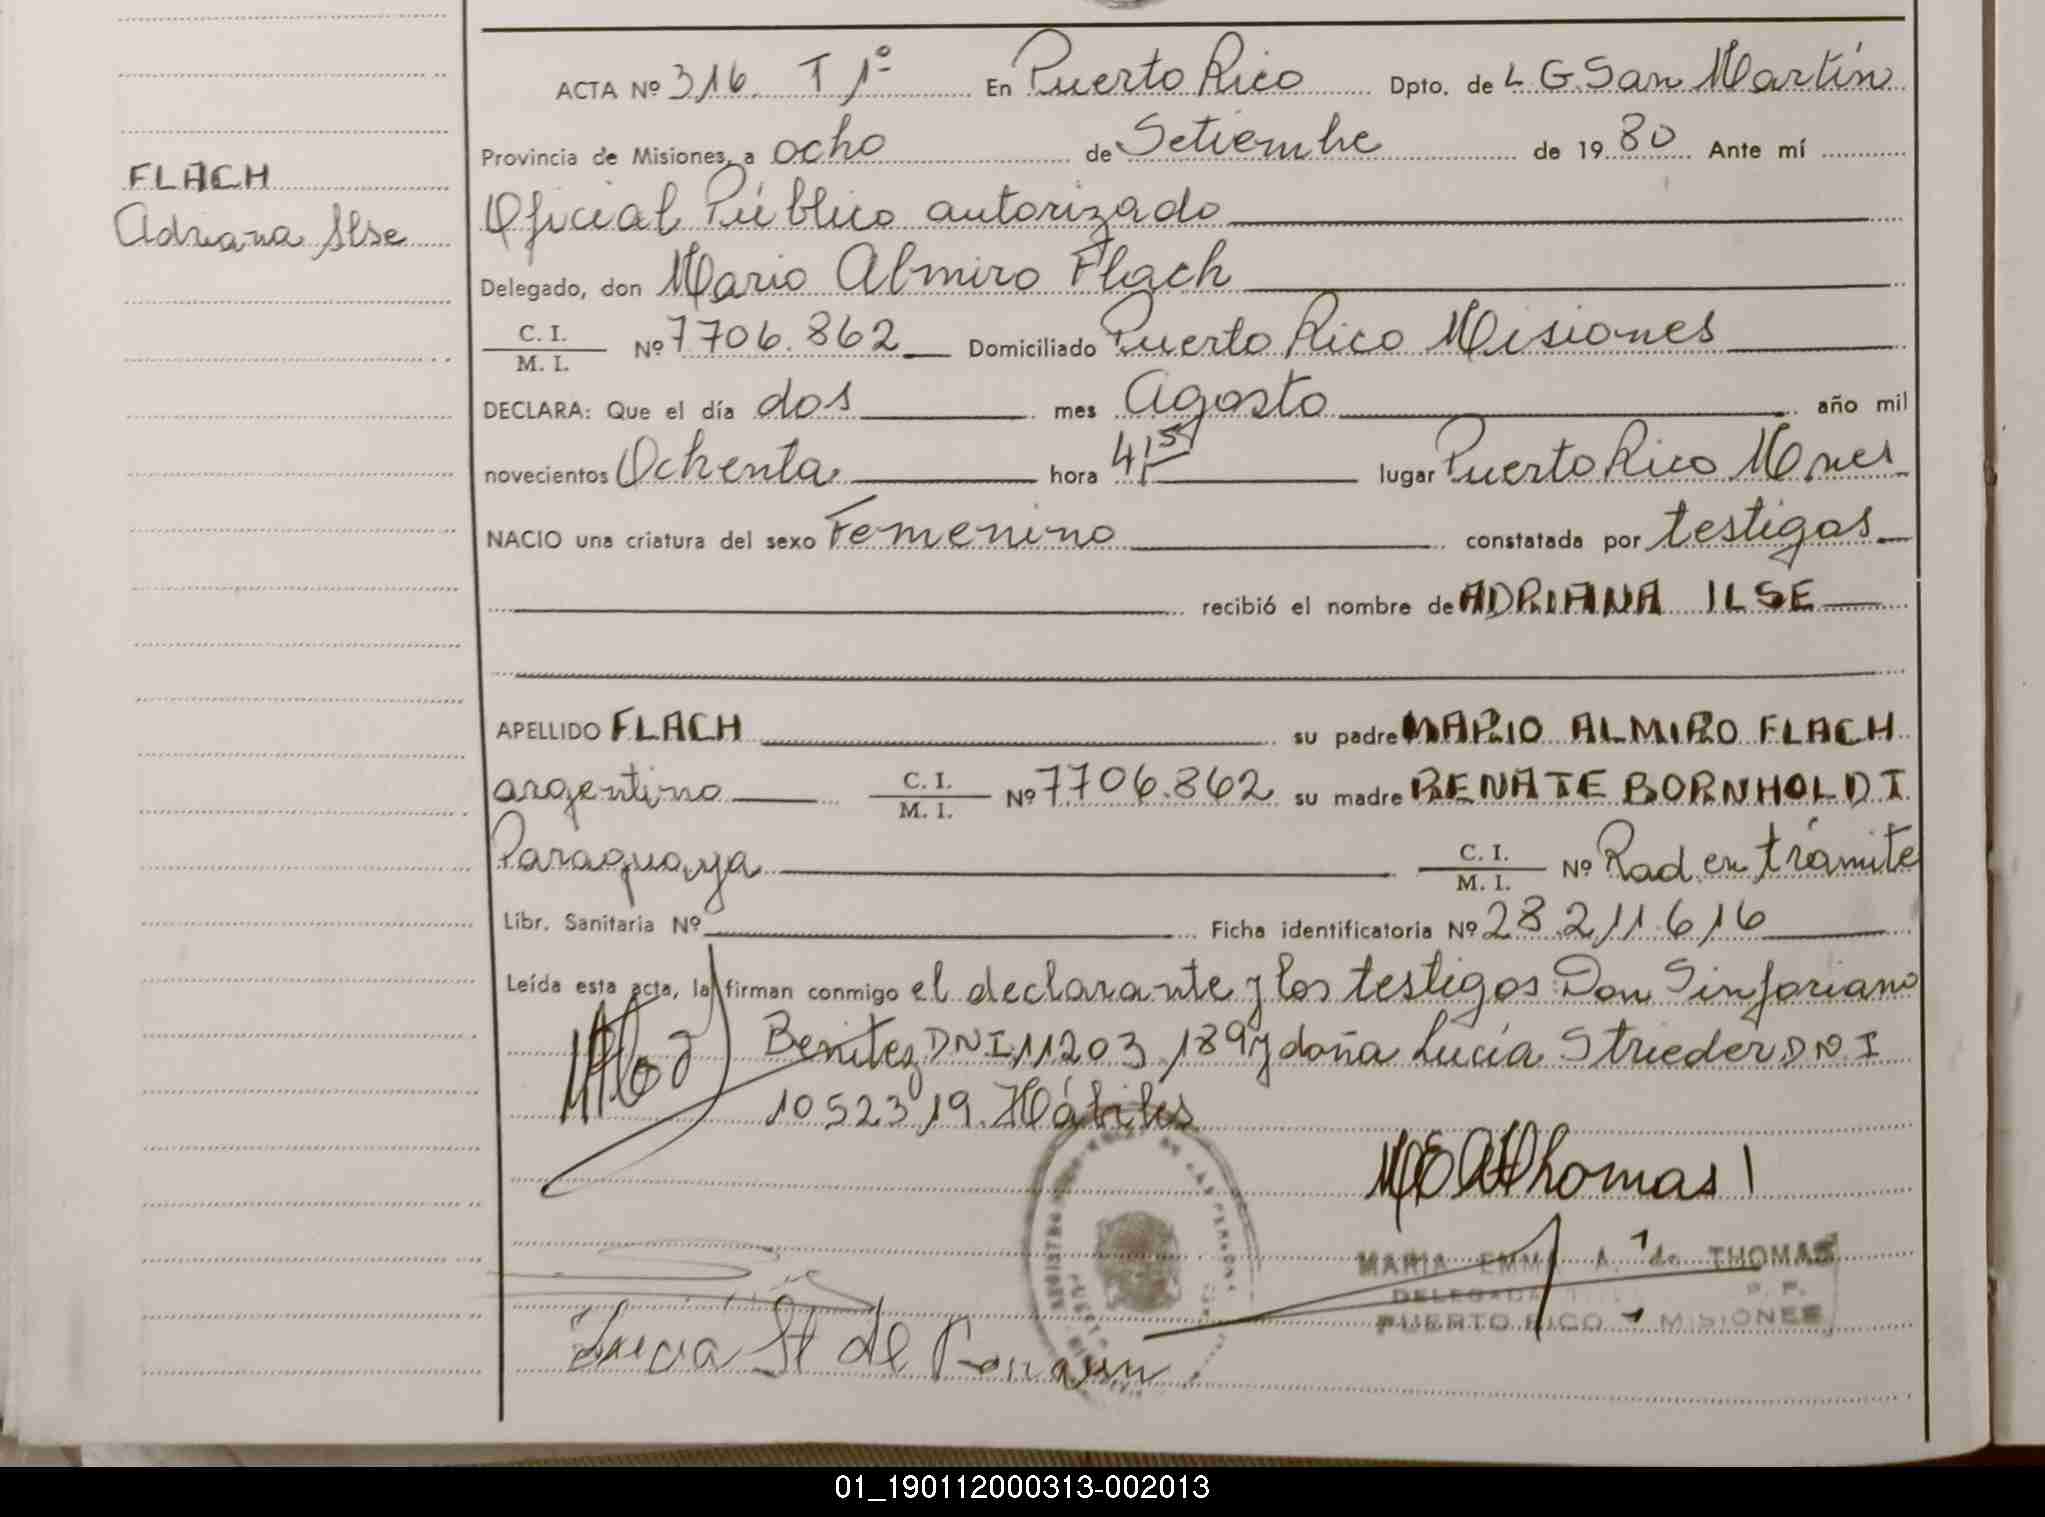 ACTA Nº 316 T 1º En Puerto Rico Dpto. de L. G. San Martín
Provincia de Misiones, a ocho de Setiembre de 1980 Ante mí
FLACH
Adriana Ilse
Oficial Público autorizado
Delegado, don Mario Almiro Flach
C. I.
M. I.
Nº 7706.862 Domiciliado Puerto Rico Misiones
DECLARA: Que el día dos mes Agosto año mil
novecientos Ochenta hora 4,15 lugar Puerto Rico Mnes
NACIO una criatura del sexo Femenino constatada por testigos
recibió el nombre de ADRIANA ILSE
APELLIDO FLACH su padre MARIO ALMIRO FLACH
argentino C. I.
M. I. Nº 7706.862 su madre RENATE BORNHOLDT
Paraguaya C. I.
M. I. Nº Rad. en trámite
Libr. Sanitaria Nº Ficha identificatoria Nº 28.211.616
Leída esta acta, la firman conmigo el declarante y los testigos Don Sinforiano
Benitez DNI 11203,189 y doña Lucía Strieder DNI
10523,19. Hábiles
M E A Thomas
MARIA EMMA A. de THOMAS
DELEGADA
PUERTO RICO - MISIONES
Lucia St de
01_190112000313-002013